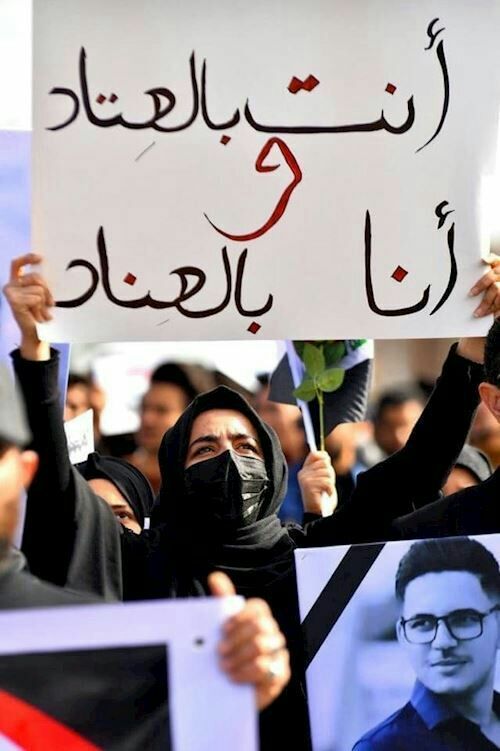 أنت بالعتاد
و
أنا بالعناد